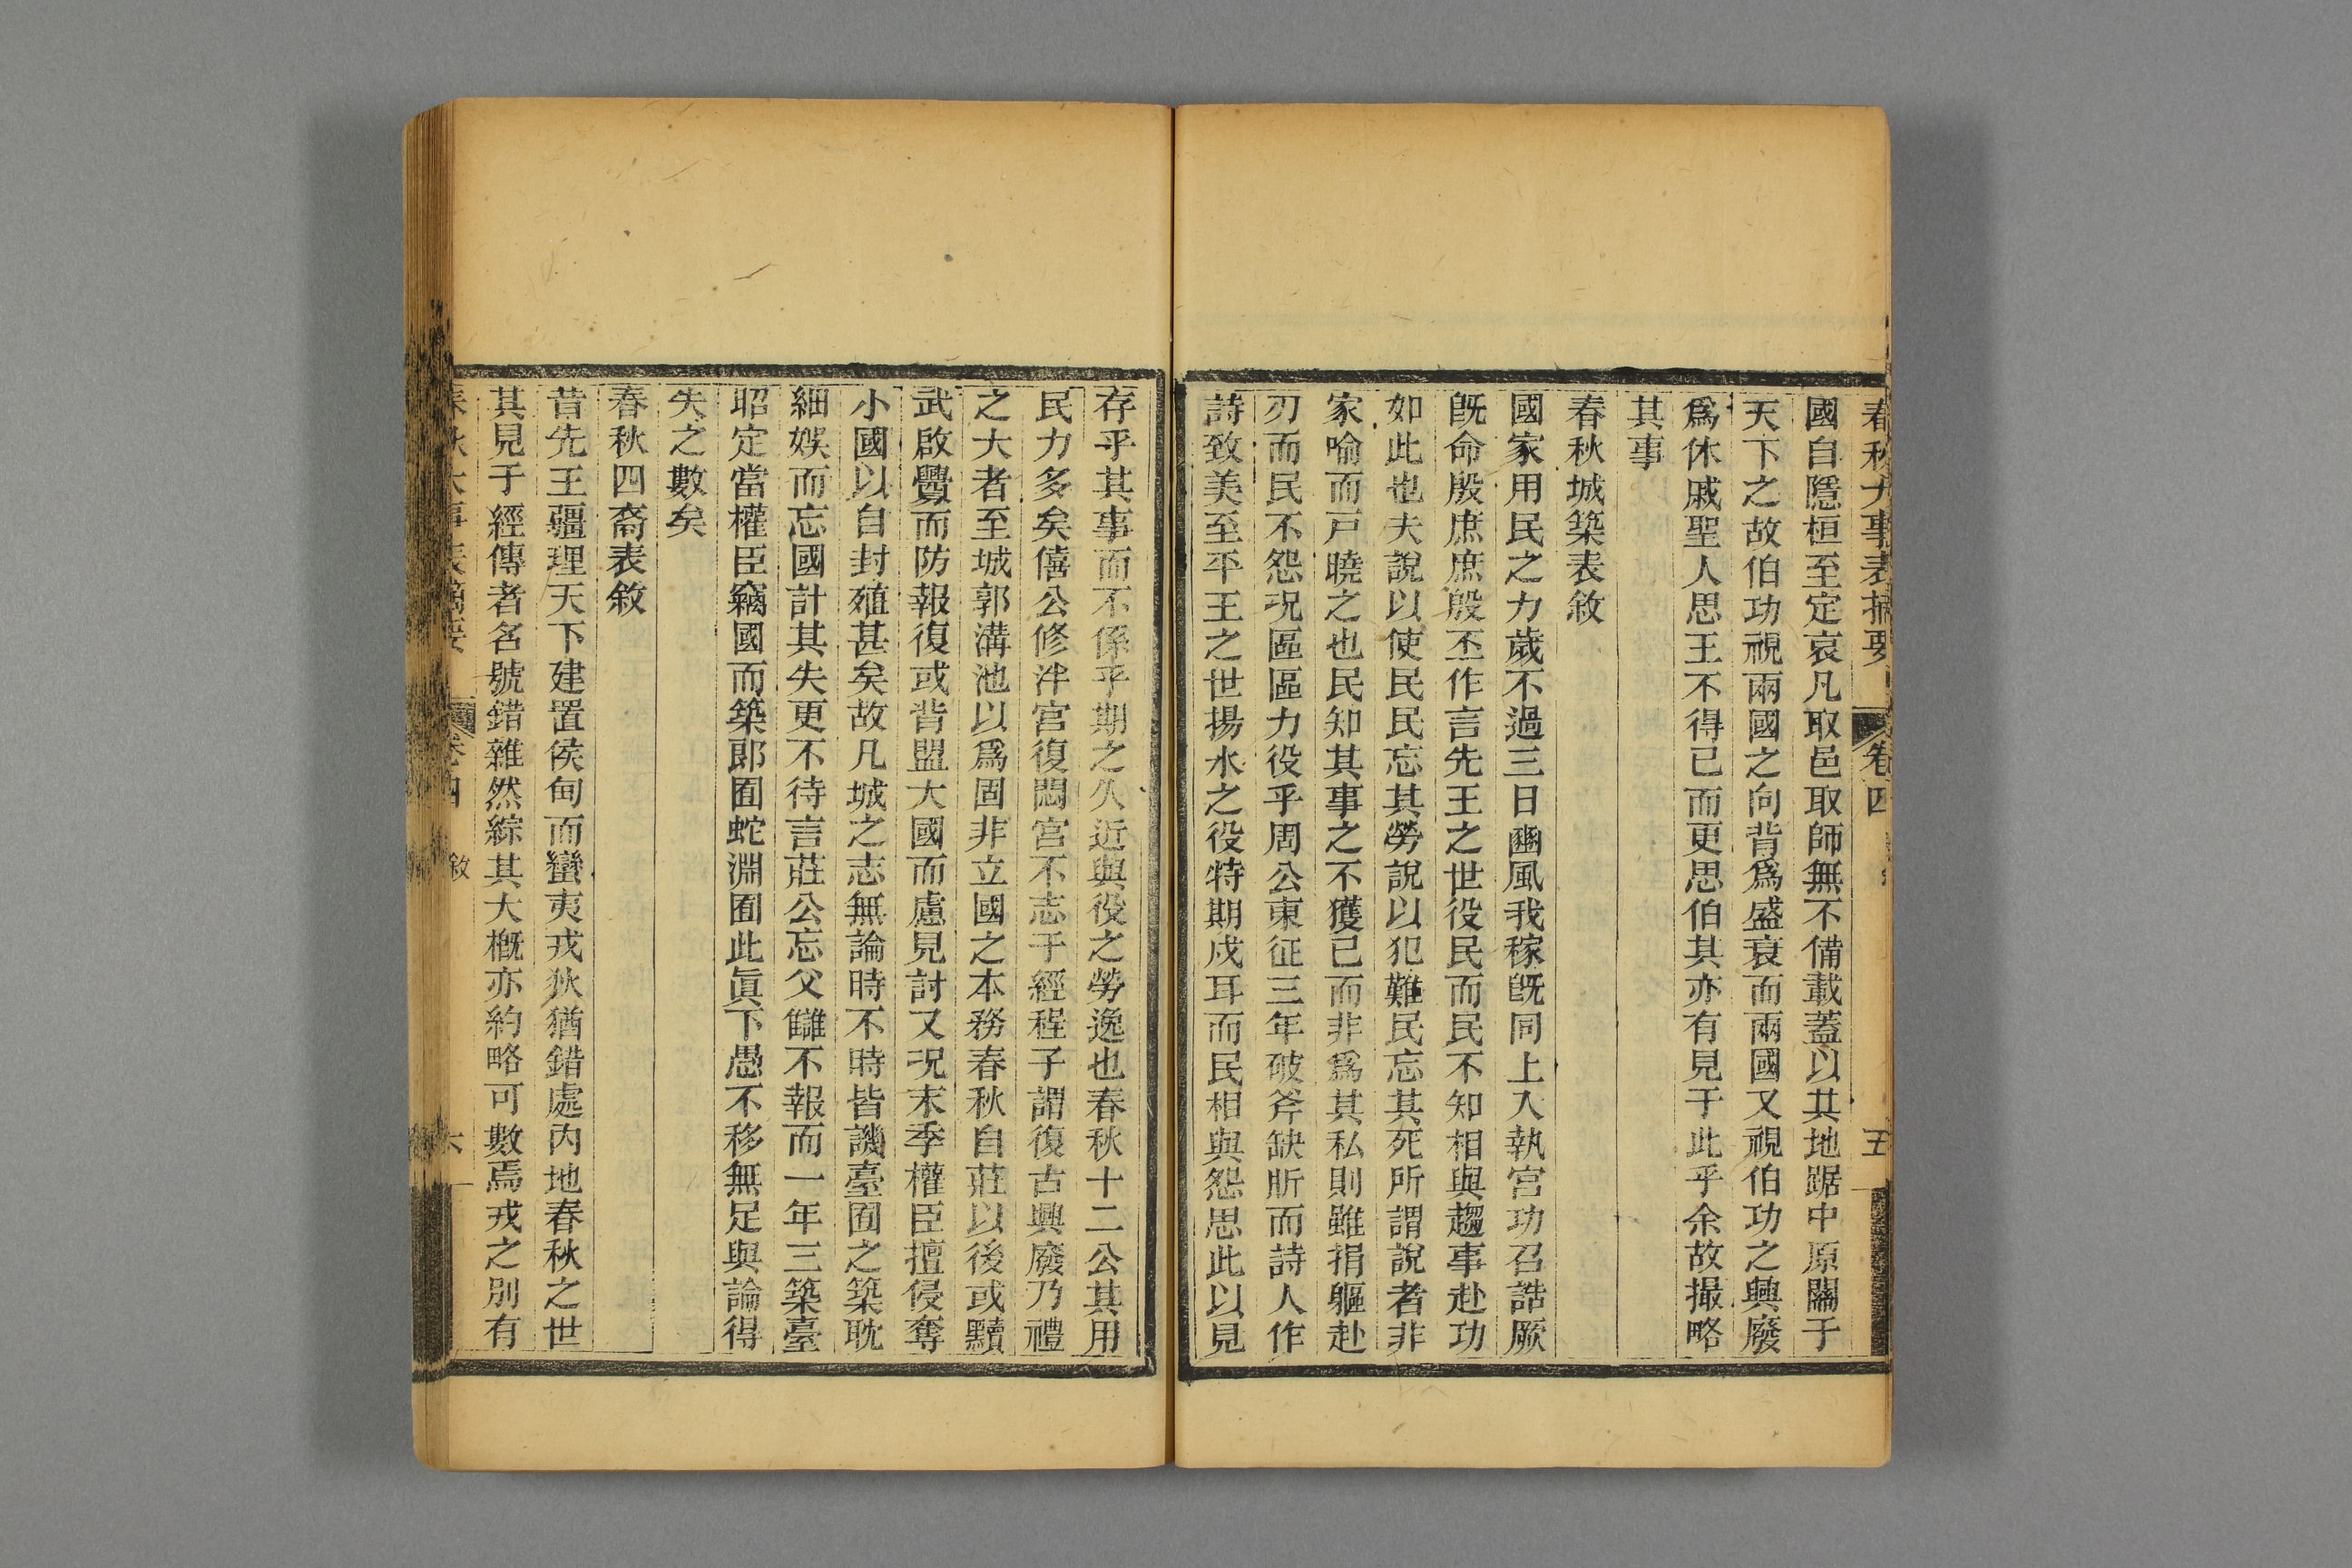 春秋大事表摘要 卷四 五
國自隱桓至定哀凡取邑取師無不備載蓋以其地踞中原關于
天下之故伯功視兩國之向背爲盛衰而兩國又視伯功之興廢
爲休戚聖人思王不得已而更思伯其亦有見于此乎余故撮略
其事
春秋城築表敘
國家用民之力歲不過三日豳風我稼既同上入執宮功召誥厥
既命殷庶庶殷丕作言先王之世役民而民不知相與趨事赴功
如此也夫說以使民民忘其勞說以犯難民忘其死所謂說者非
家喻而戸曉之也民知其事之不獲已而非爲其私則雖捐軀赴
刃而民不怨况區區力役乎周公東征三年破斧缺斨而詩人作
詩致美至平王之世揚水之役特期戍耳而民相與怨思此以見
存乎其事而不係乎期之久近與役之勞逸也春秋十二公其用
民力多矣僖公修泮宮復閟宮不志于經程子謂復古興廢乃禮
之大者至城郭溝池以爲固非立國之本務春秋自莊以後或黷
武啟釁而防報復或背盟大國而慮見討又况末季權臣擅侵奪
小國以自封殖甚矣故凡城之志無論時不時皆譏臺囿之築耽
細娛而忘國計其失更不待言莊公忘父讎不報而一年三築臺
昭定當權臣竊國而築郎囿蛇淵囿此眞下愚不移無足與論得
失之數矣
春秋四裔表敘
昔先王疆理天下建置侯甸而蠻夷戎狄猶錯處內地春秋之世
其見于經傳者名號錯雜然綜其大槪亦約略可數焉戎之別有
春秋大事表摘要 卷四 敘 六